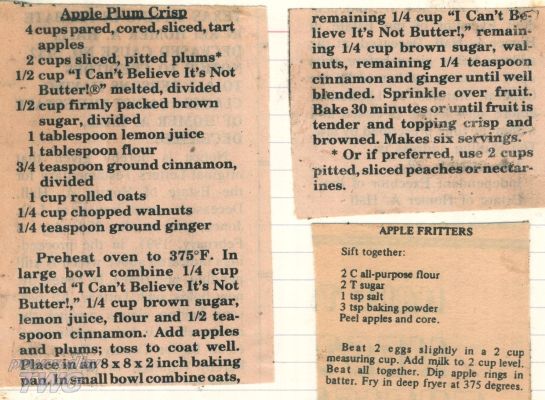 Apple Plum Crisp
4 cups pared, cored, sliced, tart
apples
2 cups sliced, pitted plums*
1/2 cup “I Can’t Believe It’s Not
Butter!®” melted, divided
1/2 cup firmly packed brown
sugar, divided
1 tablespoon lemon juice
1 tablespoon flour
3/4 teaspoon ground cinnamon,
divided
1 cup rolled oats
1/4 cup chopped walnuts
1/4 teaspoon ground ginger
Preheat oven to 375°F. In
large bowl combine 1/4 cup
melted “I Can’t Believe It’s Not
Butter!,” 1/4 cup brown sugar,
lemon juice, flour and 1/2 tea-
spoon cinnamon. Add apples
and plums; toss to coat well.
Place in an 8 x 8 x 2 inch baking
pan. In small bowl combine oats,
remaining 1/4 cup “I Can’t Be-
lieve It’s Not Butter!,” remain-
ing 1/4 cup brown sugar, wal-
nuts, remaining 1/4 teaspoon
cinnamon and ginger until well
blended. Sprinkle over fruit.
Bake 30 minutes or until fruit is
tender and topping crisp and
browned. Makes six servings.
* Or if preferred, use 2 cups
pitted, sliced peaches or nectar-
ines.
APPLE FRITTERS
Sift together:
2 C all-purpose flour
2 T sugar
1 tsp salt
3 tsp baking powder
Peel apples and core.
Beat 2 eggs slightly in a 2 cup
measuring cup. Add milk to 2 cup level.
Beat all together. Dip apple rings in
batter. Fry in deep fryer at 375 degrees.